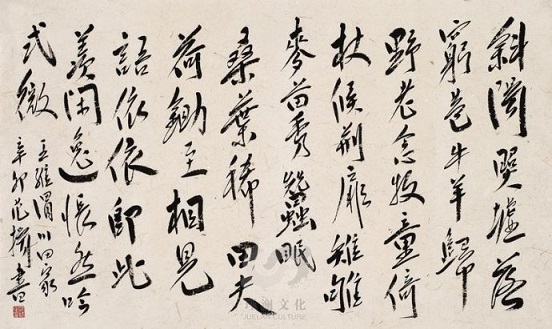 斜陽照墟落
窮巷牛羊歸
野老念牧童倚
杖候荊扉雉雊
麥苗秀蠶眠
桑葉稀田夫
荷鋤至相見
語依依即此
羨閑逸悵然吟
式微
王維渭川田家
辛卯范揚書
文化
CULTURE